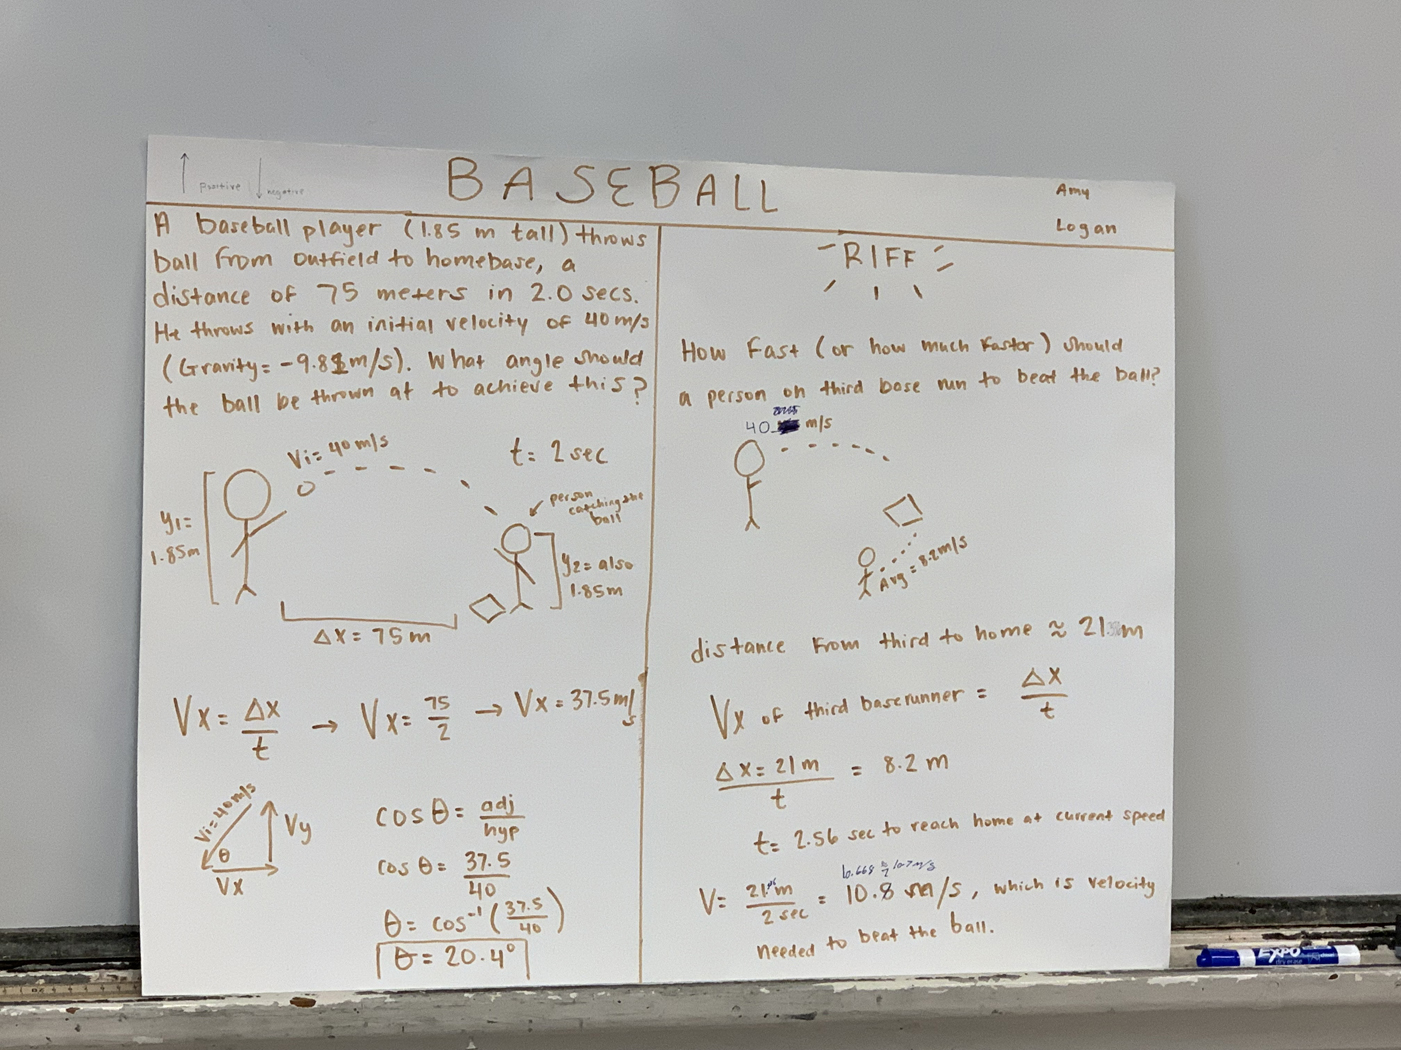 positive
negative
BASEBALL
Amy
Logan
A baseball player (1.85 m tall) throws
ball from outfield to homebase, a
distance of 75 meters in 2.0 secs.
He throws with an initial velocity of 40 m/s
(Gravity = -9.81 m/s). What angle should
the ball be thrown at to achieve this?
Vi = 40 m/s
t = 2 sec
person
catching the
ball
y1 =
1.85m
y2 = also
1.85m
Δx = 75 m
Vx = Δx/t → Vx = 75/2 → Vx = 37.5 m/s
Vi = 40 m/s
θ
Vy
Vx
cos θ = adj/hyp
cos θ = 37.5/40
θ = cos⁻¹ (37.5/40)
θ = 20.4°
RIFF
How fast (or how much faster) should
a person on third base run to beat the ball?
40 m/s
Avg = 8.2 m/s
distance from third to home ≈ 21 m
Vx of third baserunner = Δx/t
Δx = 21 m/t = 8.2 m
t = 2.56 sec to reach home at current speed
V = 21 m/2 sec = 10.8 m/s, which is velocity
needed to beat the ball.
EXPO